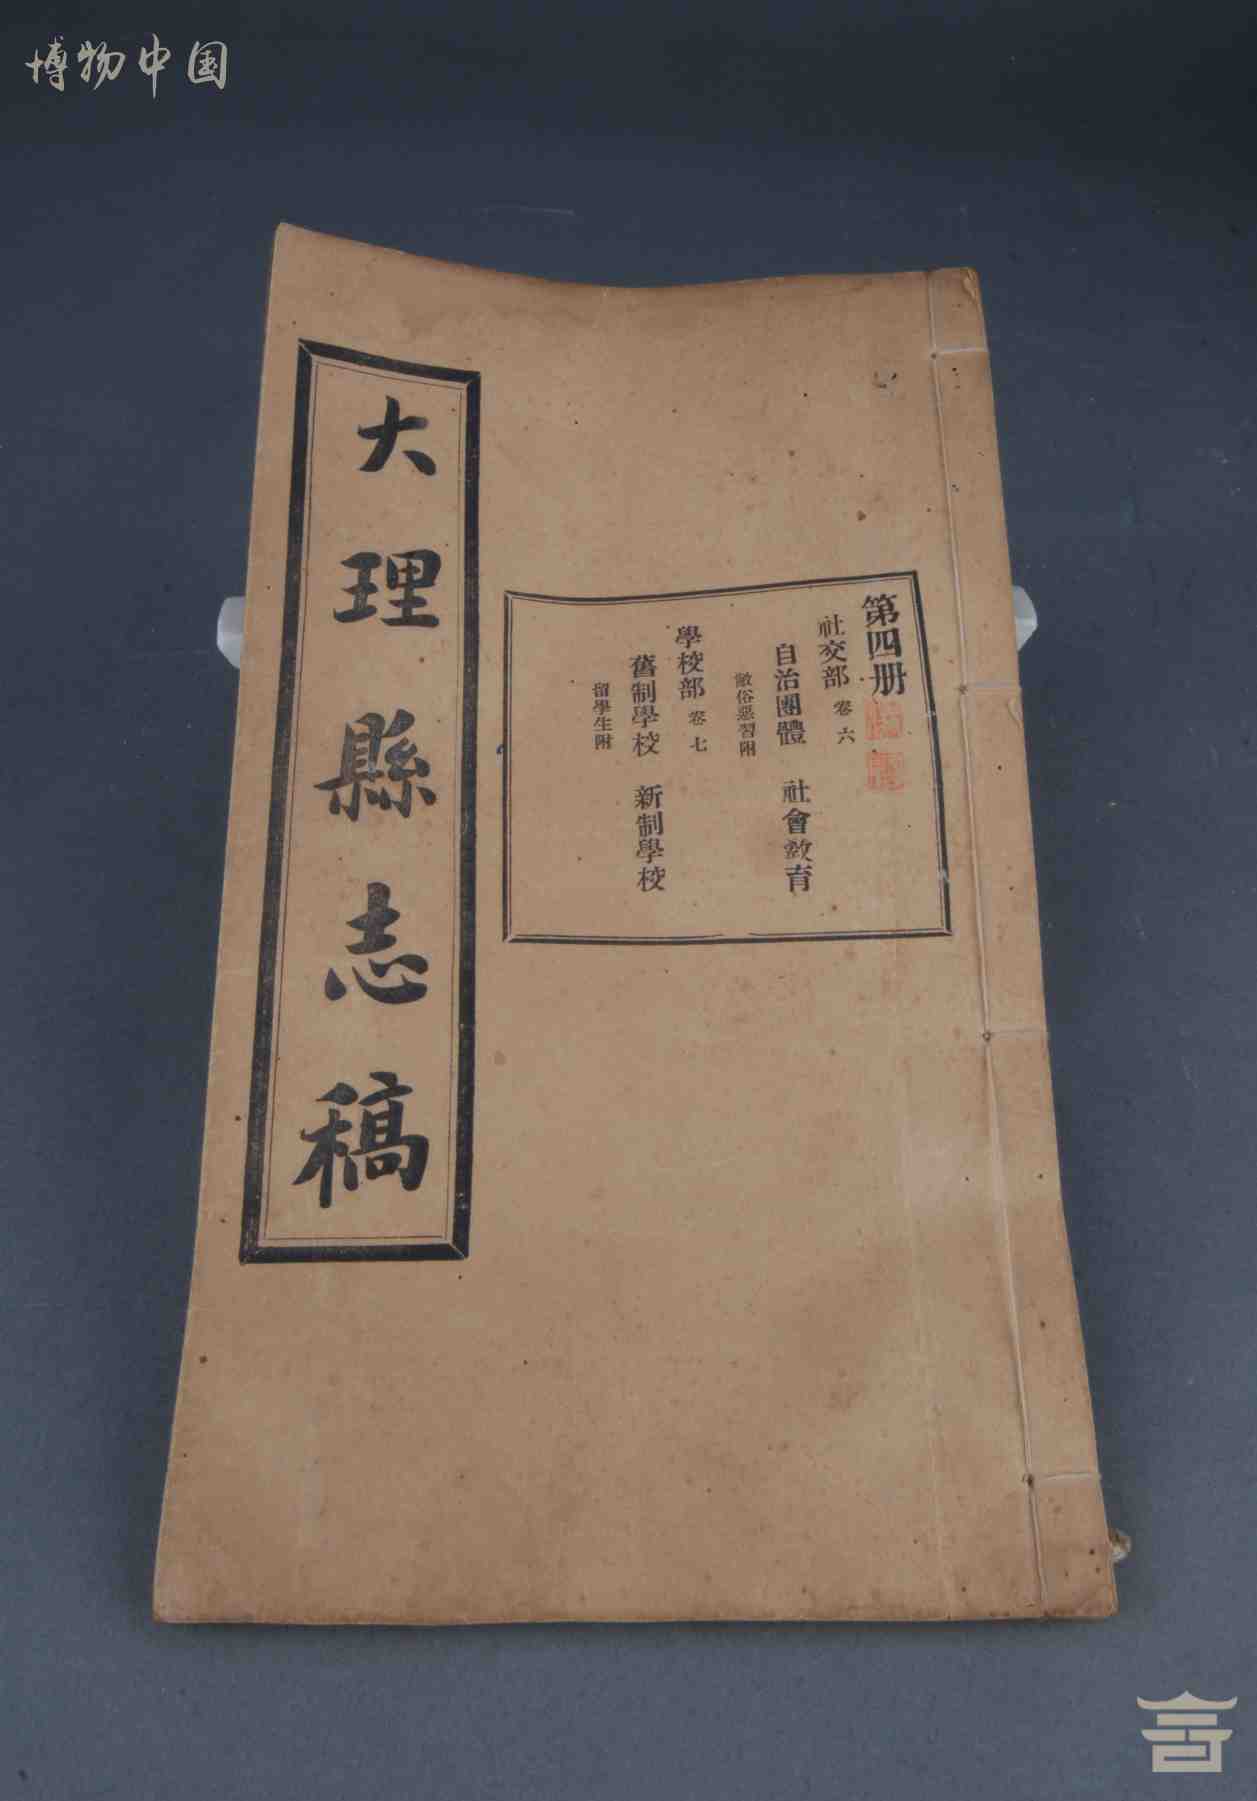 博物中国
大理縣志稿
第四册
社交部 卷六
自治團體 社會教育
敝俗惡習附
學校部 卷七
舊制學校 新制學校
留學生附